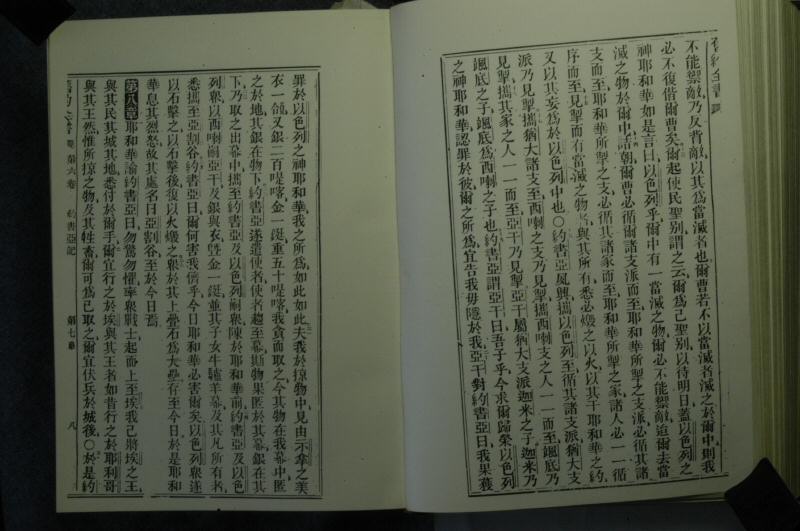 舊約全書
不能禦敵、乃反背敵、以其爲當滅者也、爾曹若不以當滅者滅之於爾中、則我
必不復偕爾曹矣、爾起使民聖別、謂之云、爾爲己聖別、以待明日、蓋以色列之
神耶和華如是言曰、以色列乎、爾中有一當滅之物、爾必不能禦敵、迨爾去當
滅之物於爾中、詰朝爾曹必循爾諸支派而至、耶和華所掣之支派、必循其諸
支而至、耶和華所掣之支、必循其諸家而至、耶和華所掣之家、諸人必一一循
序而至、見掣而有當滅之物者、與其所有、悉必燬之以火、以其干耶和華之約、
又以其妄爲於以色列中也、○約書亞夙興、攜以色列至、循其諸支派、猶大支
派乃見掣、攜猶大諸支至、西喇之支乃見掣、攜西喇支之人一一而至、颯底乃
見掣、攜其家之人一一而至、亞干乃見掣、亞干屬猶大支派、迦米之子、迦米乃
颯底之子、颯底爲西喇之子也、約書亞謂亞干曰、吾子乎、今求爾歸榮以色列
之神耶和華、認罪於彼、爾之所爲、宜告我、毋隱於我、亞干對約書亞曰、我果獲
罪於以色列之神耶和華、我之所爲、如此如此、夫我於掠物中、見由示拿之美
衣一領、又銀二百㖷喀、金一鋌、重五十㖷喀、我貪而取之、今其物在我幕中、匿
之於地、其銀在物下、約書亞遂遣使者、使者趨至幕、斯物果匿於其幕、銀在其
下、乃取之出幕中、攜至約書亞及以色列嗣、衆陳於耶和華前、約書亞及以色
列衆、以西喇嗣亞干、及銀與衣曁金一鋌、並其子女牛驢羊幕、及其凡所有者、
悉攜至亞割谷、約書亞曰、爾何害我儕乎、今日耶和華必害爾矣、以色列衆遂
以石擊之、以石擊後、復以火燬之、衆於其上疊石爲大壘、存至今日、於是耶和
華息其烈怒、故其處名曰亞割谷、至於今日焉、
第八章 耶和華諭約書亞曰、勿驚勿懼、率衆戰士起而上至埃、我已將埃之王
與其民其城其地、悉付於爾手、爾宜行之於埃與其王者、如昔行之於耶利哥
與其王然、惟所掠之物、及其牲畜、爾可爲己取之、爾宜伏兵於城後、○於是約
第六卷 約書亞記 第七章 八